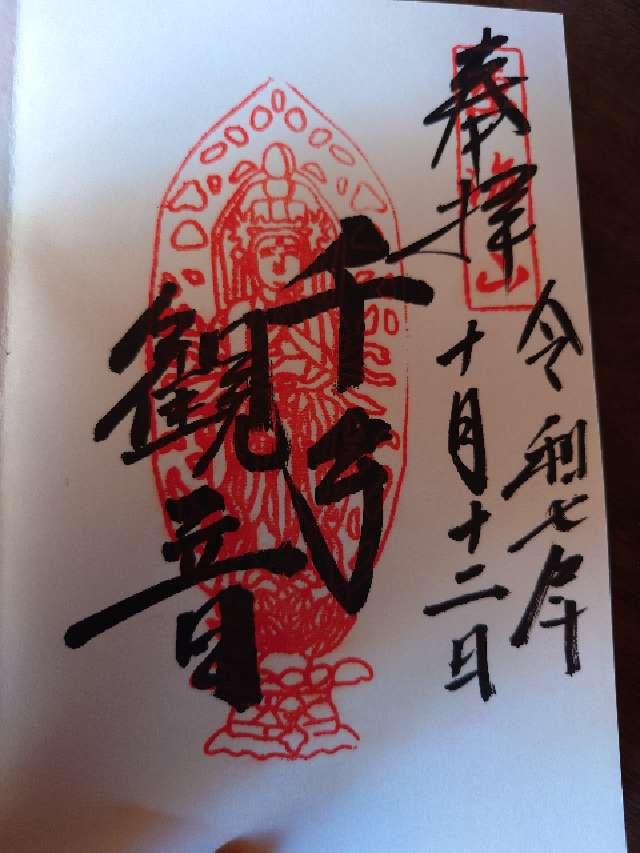 奉拝
令和七年
十月十二日
千手
観音